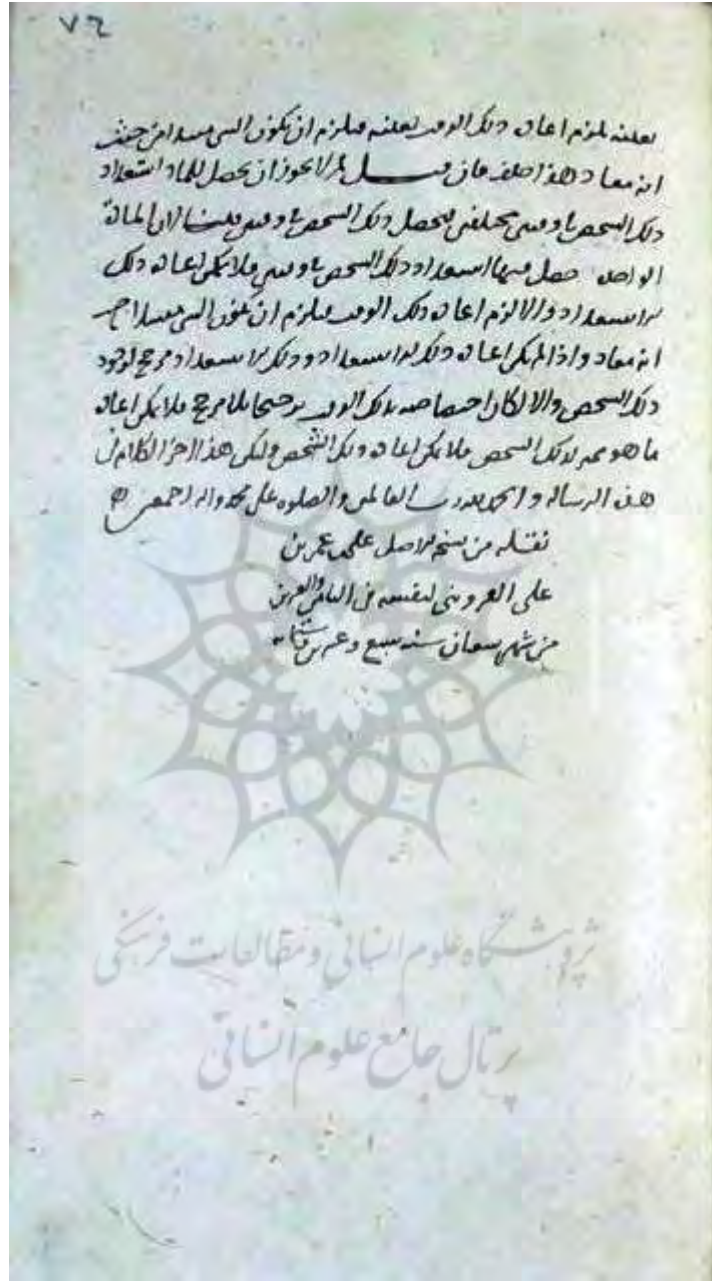 ٧٦
بعينه لزم اعادة ذلك الوقت بعينه فيلزم ان يكون الشي مبتدا من حيث
انه معاد هذا خلف فان قيل لم لا يجوز ان يحصل للمادة استعداد
ذلك الشخص في وقتين مختلفين فيحصل ذلك الشخص في وقتين قلنا لان المادة
الواحدة حصل فيها استعداد ذلك الشخص في وقتين فلا يمكن اعادة ذلك
الاستعداد والا لزم اعادة ذلك الوقت فيلزم ان يكون الشي مبتدا من حيث
انه معاد واذا لم يمكن اعادة ذلك الاستعداد وذلك الاستعداد مرجح لوجود
ذلك الشخص والا لكان اختصاصه بذلك الوقت ترجيحا بلا مرجح فلا يمكن اعادة
ما هو لذلك الشخص فلا يمكن اعادة ذلك الشخص وليكن هذا اخر الكلام في
هذه الرسالة والحمد لله رب العالمين والصلوة على محمد واله اجمعين
نقله من نسخة الاصل علي بن عمر بن
علي القزويني لنفسه في الثامن والعشرين
من شهر شعبان سنة سبع وعشرين وستمائة
پژوهشگاه علوم انسانی و مطالعات فرهنگی
پرتال جامع علوم انسانی